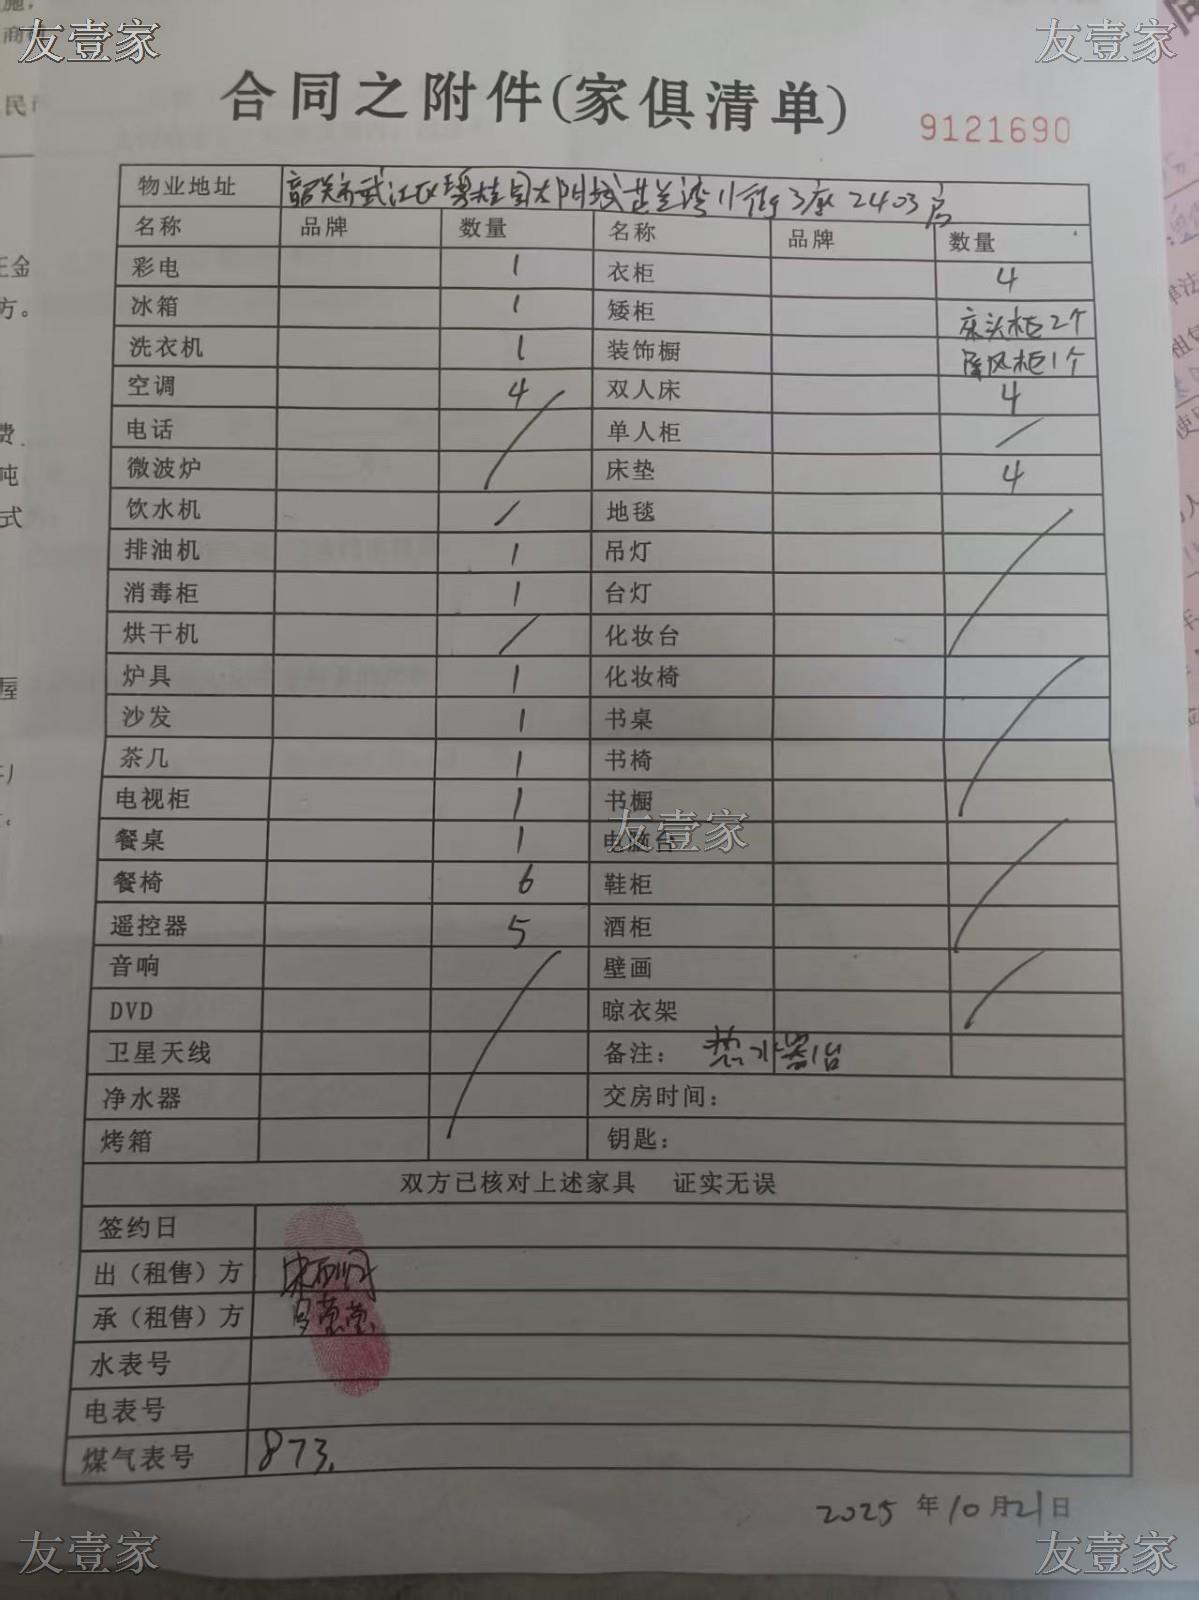 友壹家
友壹家
合同之附件(家俱清单)
9121690
物业地址 韶关市武江区碧桂园太阳城芷兰湾11街3座2403房
名称 品牌 数量 名称 品牌 数量
彩电 1 衣柜 4
冰箱 1 矮柜 床头柜2个
洗衣机 1 装饰橱 隔风柜1个
空调 4 双人床 4
电话 单人柜 /
微波炉 床垫 4
饮水机 / 地毯
排油机 1 吊灯
消毒柜 1 台灯
烘干机 / 化妆台
炉具 1 化妆椅
沙发 1 书桌
茶几 1 书椅
电视柜 1 书橱
友壹家
餐桌 1 电脑台
餐椅 6 鞋柜
遥控器 5 酒柜
音响 壁画
DVD 晾衣架
卫星天线 备注: 热水器1台
净水器 交房时间:
烤箱 钥匙:
双方已核对上述家具 证实无误
签约日
出（租售）方
承（租售）方 罗莹莹
水表号
电表号
煤气表号 873.
2025年10月21日
友壹家
友壹家